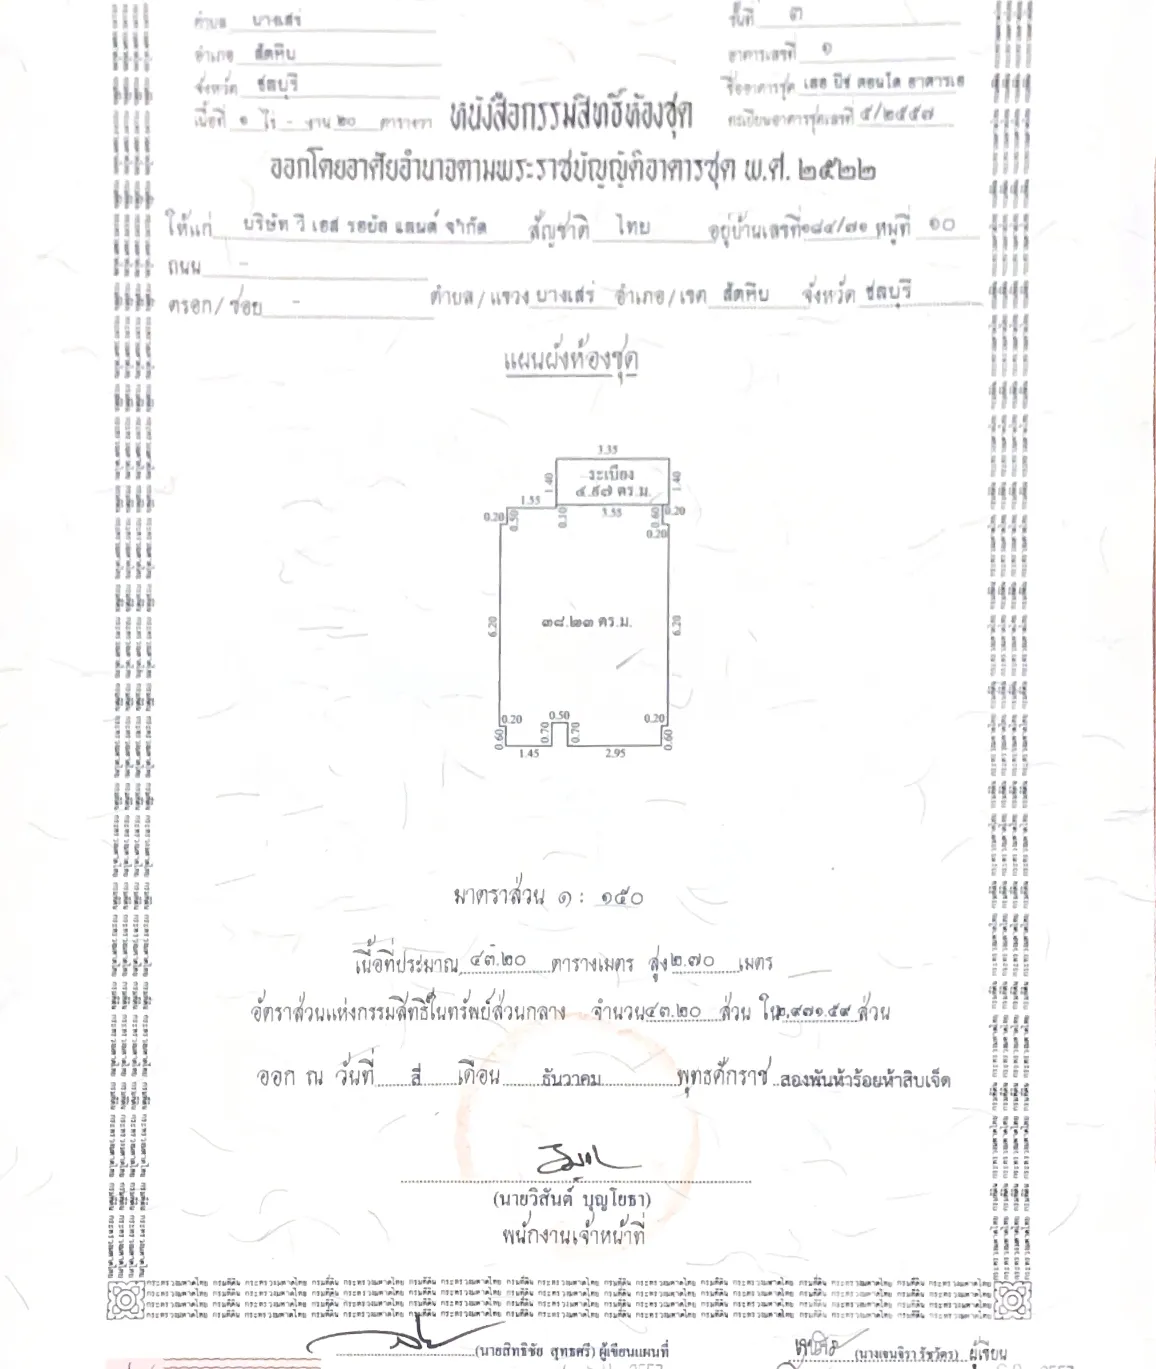 ตำบล บางเสร่ ชั้นที่ ๓
อำเภอ สัตหีบ อาคารเลขที่ ๑
จังหวัด ชลบุรี ชื่ออาคารชุด เดอ บีช คอนโด อาคารเอ
เนื้อที่ ๑ ไร่ - งาน ๒๐ ตารางวา หนังสือกรรมสิทธิ์ห้องชุด ทะเบียนอาคารชุดเลขที่ ๕/๒๕๕๗
ออกโดยอาศัยอำนาจตามพระราชบัญญัติอาคารชุด พ.ศ. ๒๕๒๒
ให้แก่ บริษัท วี เอส รอยัล แลนด์ จำกัด สัญชาติ ไทย อยู่บ้านเลขที่ ๑๘๔/๗๑ หมู่ที่ ๑๐
ถนน -
ตรอก/ซอย - ตำบล/แขวง บางเสร่ อำเภอ/เขต สัตหีบ จังหวัด ชลบุรี
แผนผังห้องชุด
3.35
1.40 ระเบียง 1.40
๔.๙๗ ตร.ม.
1.55
0.20 0.50 0.10 3.55 0.60 0.20
0.20
6.20 ๓๘.๒๓ ตร.ม. 6.20
0.20 0.50 0.20
0.60 0.70 0.70 0.60
1.45 2.95
มาตราส่วน ๑ : ๑๕๐
เนื้อที่ประมาณ ๔๓.๒๐ ตารางเมตร สูง ๒.๗๐ เมตร
อัตราส่วนแห่งกรรมสิทธิ์ในทรัพย์ส่วนกลาง จำนวน ๔๓.๒๐ ส่วน ใน ๒,๙๗๑.๕๙ ส่วน
ออก ณ วันที่ สี่ เดือน ธันวาคม พุทธศักราช สองพันห้าร้อยห้าสิบเจ็ด
(นายวิสันต์ บุญโยธา)
พนักงานเจ้าหน้าที่
กระทรวงมหาดไทย กรมที่ดิน กระทรวงมหาดไทย กรมที่ดิน กระทรวงมหาดไทย กรมที่ดิน
(นายสิทธิชัย สุทธศรี) ผู้เขียนแผนที่ (นางเจนจิรา รัชวัตร์) ผู้เขียน